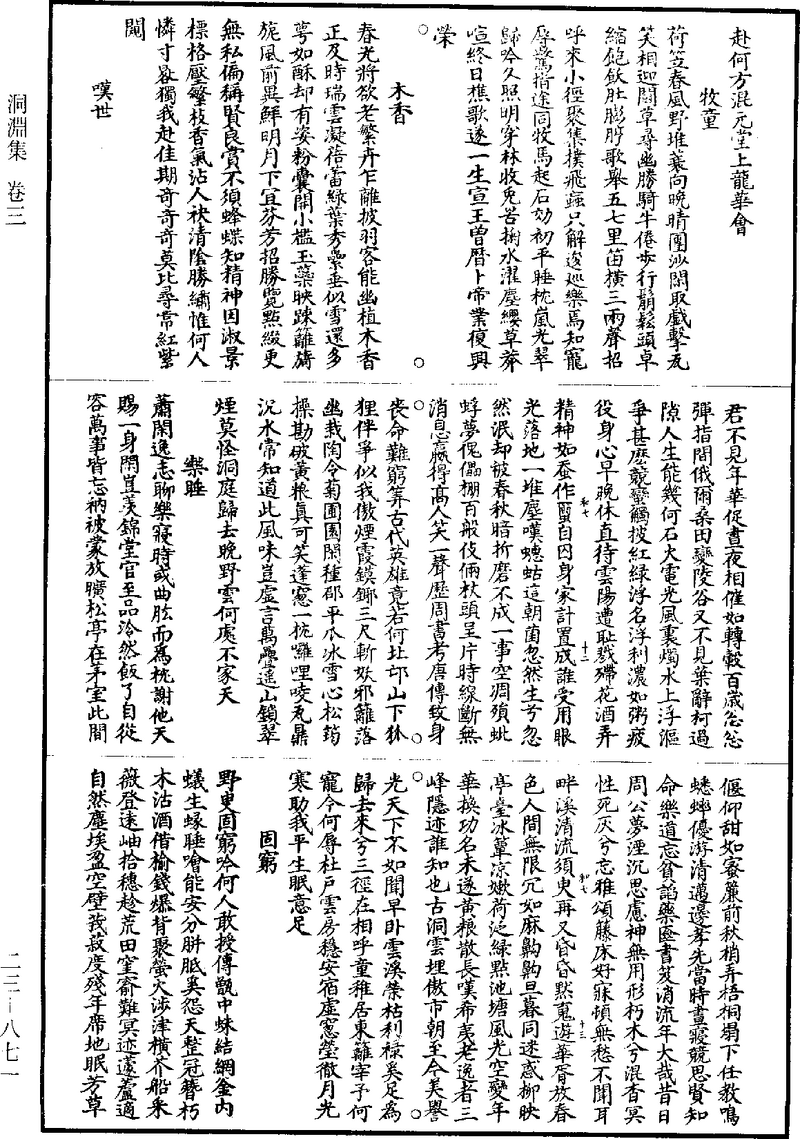 赴何方混元堂上龍華會
牧童
荷笠春風野堆蓑向晚晴團沙閑取戲擊瓦
笑相迎鬪草尋幽勝騎牛倦步行鬅鬆頭卓
縮飽飫肚膨脝歌舉五七里笛橫三兩聲招
呼來小徑聚集撲飛蟲只解逡巡樂焉知寵
辱驚指途同牧馬起石効初平睡枕嵐光翠
歸吟久照明穿林收兔罟掬水濯塵纓草莽
喧終日樵歌遂一生宣王曾曆卜帝業復興
榮
木香
春光將欲老繁卉乍離披羽客能幽植木香
正及時瑞雲凝蓓蕾綠葉秀縈垂似雪還多
萼如酥却有姿粉囊開小檻玉蘂映踈籬旖
旎風前異鮮明月下宜芬芳招勝覽點綴更
無私偏稱賢良賞不須蜂蝶知精神因淑景
標格壓繁枝香氣沾人袂清陰勝繡帷何人
憐寸晷獨我赴佳期奇奇奇莫比尋常紅紫
闌
嘆世
君不見年華促晝夜相催如轉轂百歲忩忩
彈指間俄爾桑田變陵谷又不見葉辭柯過
隙人生能幾何石火電光風裏燭水上浮漚
爭甚麽競蠻觸披紅綠浮名浮利濃如粥疲
役身心早晚休直待雲陽遭恥戮殢花酒弄
精神如蚕作蠒自因身家計置成誰受用眼
光落地一堆塵嘆蟪蛄這朝菌忽然生兮忽
然泯却被春秋暗折磨不成一事空凋殞蚍
蜉夢傀儡棚百般伎倆杖頭呈片時線斷無
消息贏得高人笑一聲歷周書考唐傳致身
喪命難窮筭古代英雄竟若何北邙山下狐
狸伴爭似我傲煙霞鏌鎁三尺斬妖邪籬落
幽栽陶令菊園園閑種邵平瓜冰雪心松筠
操勘破黃粮真可笑蓬窓一枕囉哩㖫瓦鼎
沉水常知道此風味豈虛言萬疊遥山鎖翠
煙莫怪洞庭歸去晚野雲何處不家天
樂睡
蕭閑逸志聊樂寢時或曲肱而為枕謝他天
賜一身閑豈羨錦堂官至品泠然飯了自從
容萬事皆忘衲被蒙放曠松亭在茅室此間
偃仰甜如蜜簾前秋梢弄梧桐塌下任教鳴
蟋蟀優游清邁邊孝先當時晝寢競思賢知
命樂道忘貧諂藥區書笈消流年大哉昔日
周公夢湮沉思慮神無用形朽木兮混杳冥
性死灰兮忘雅頌藤床好寐頓無愁不聞耳
畔溪清流須臾再又昏昏默䰟遊華胥放春
色人間無限冗如麻齁齁旦暮同迷惑柳映
亭臺冰簟涼嫰荷泛綠點池塘風光空變年
華換功名未遂黃粮散長嘆希夷老逸者三
峰隱迹誰知也古洞雲埋傲市朝至今美譽
光天下不如閒早卧雲溪榮枯利祿奚足為
歸去來兮三徑在相呼童稚居東籬宰予何
寵今何辱杜戶雲房穩安宿虛窓瑩徹月光
寒助我平生眠意足
固窮
野叟固窮吟何人敢授傳甑中蛛結網釜內
蟻生緣睡噲能安分胼胝奚怨天整冠簪朽
木沽酒借榆錢爆背聚螢火涉津橫芥船采
薇登遠岫拾穗趁荒田窒窬難冥迹蘧蘆適
自然塵埃盈空壁菽菽度殘年席地眠芳草
洞淵集 卷三
二三—八七一
和七
十二
和七
十三